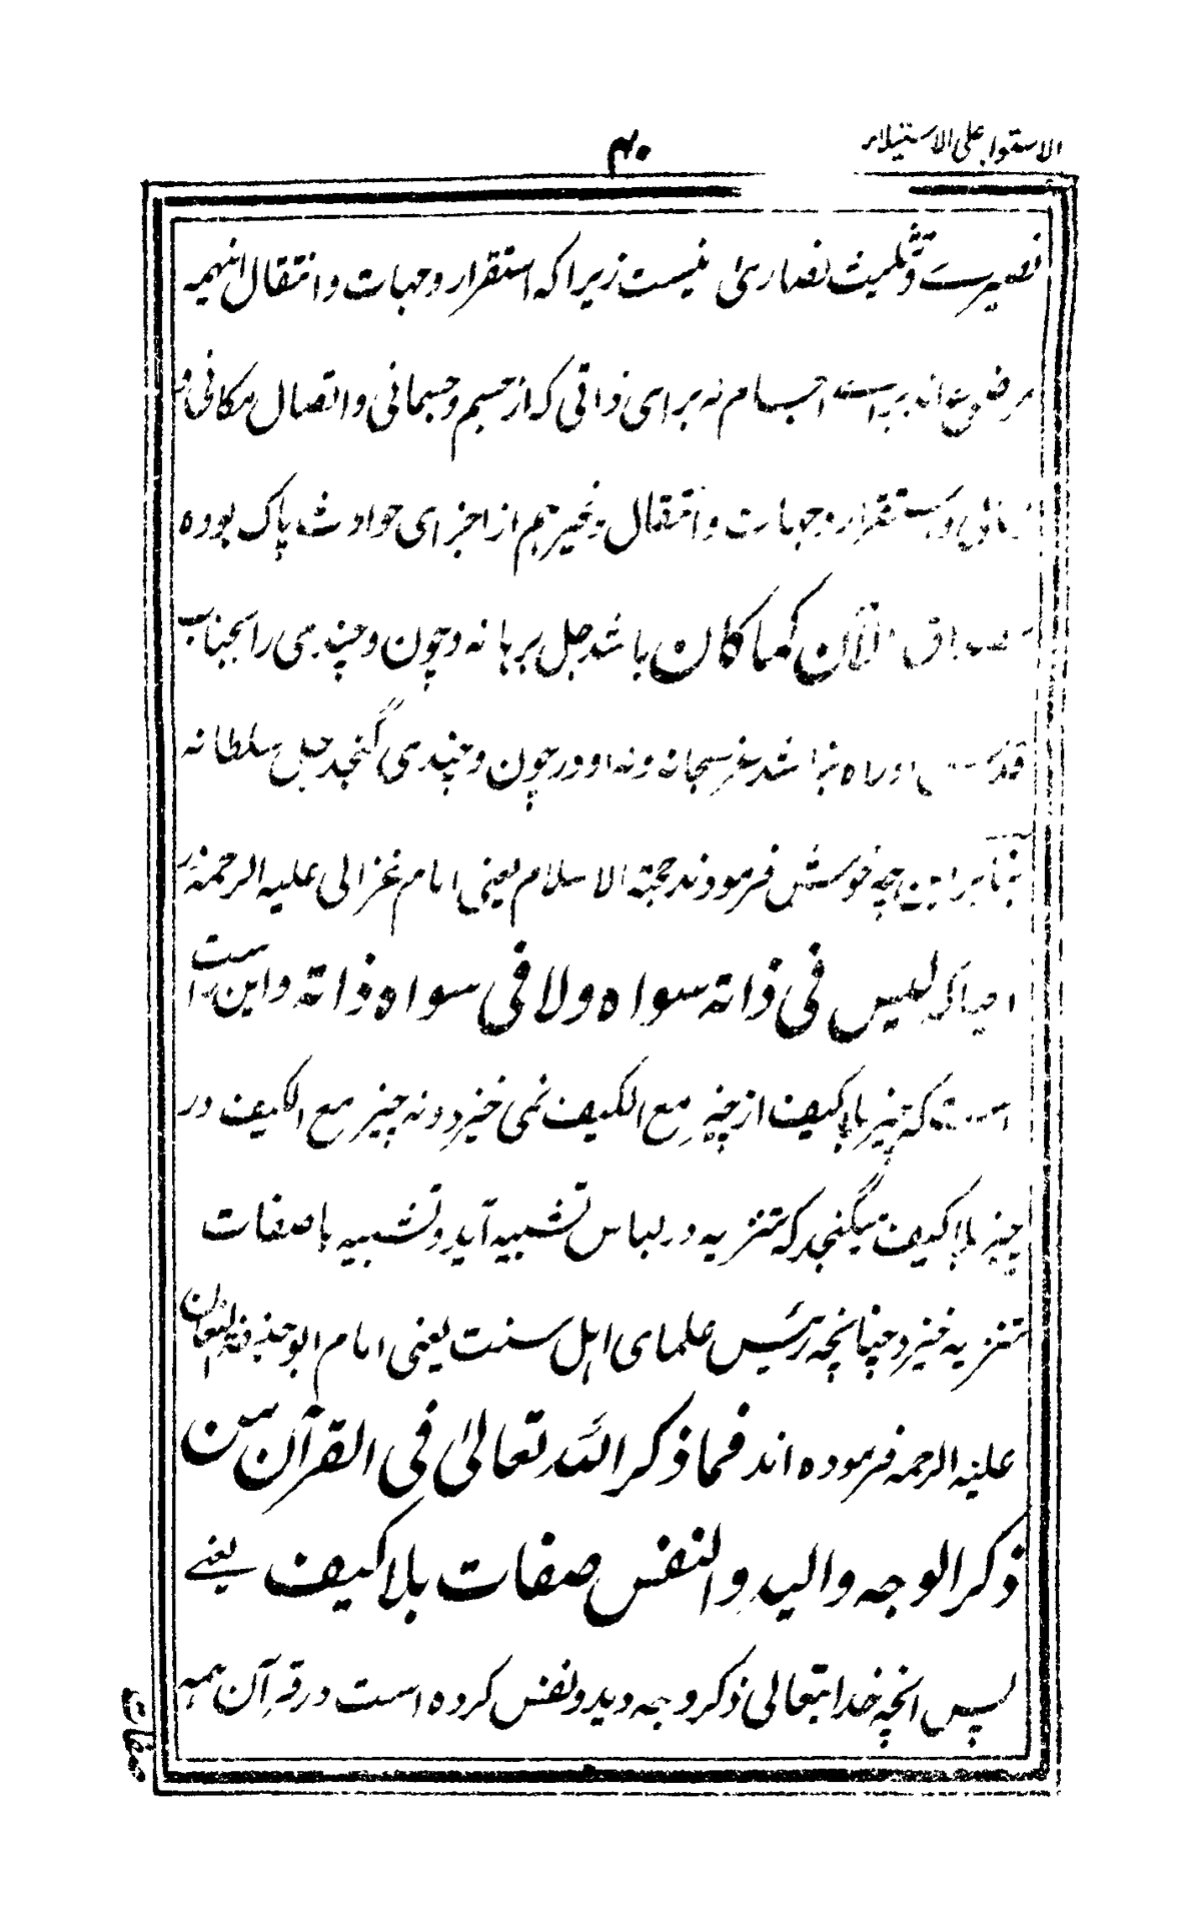 الاستواء علی الاستیلاء
۴۰
نصیریت و تثلیث نصاریٰ نیست زیرا که استقرار و جهات و انتقال اینهمه
موضوع اند برای اجسام نه برای ذاتی که از جسم و جسمانی و اتصال مکانی و
زمانی و استقرار و جهات و انتقال و غیرهم از اجزای حوادث پاک بوده
مصداق الآن کما کان باشد جل برهانه و چون و چندی را بجناب
قدس او راه نباشد عز سبحانه و نه او در چون و چندی گنجد جل سلطانه
بنابراین چه خوش فرمودند حجة الاسلام یعنی امام غزالی علیه الرحمة در
احیا که لیس فی ذاته سواه ولا فی سواه ذاته و این راست
است که چیز بلا کیف از چیز مع الکیف نمی خیزد و نه چیز مع الکیف در
چیز بلا کیف میگنجد که تنزیه در لباس تشبیه آید و تشبیه با صفات
تنزیه خیزد چنانچه رئیس علمای اهل سنت یعنی امام ابو حنیفة النعمان
علیه الرحمه فرموده اند فما ذکر الله تعالیٰ فی القرآن من
ذکر الوجه والید والنفس صفات بلا کیف یعنے
پس انچه خدایتعالی ذکر وجه و ید و نفس کرده است در قرآن همه
صفات